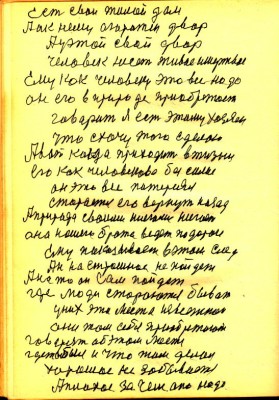 Есть свой жилой дом
А к нему огаротен двор
А у этой свой двор
Человек несет живое и мертвое
Ему как человеку это все надо
он его в природе приобретает
говорит я есть этому хозяин
что схочу того сделаю
А вот когда приходит в жизни
его как человеково бы силе
он это все потерял
старается его вернуть назад
А природа своими силами
она нашего брата ведет по дороге
Ему показывает в этом след
Он на страшное не пойдет
А на то он сам пойдет
где люди стараются бывать
у них эта места неизвестно
они там себя приобретают
говорят об этом месте
где были и что там делали
хорошее не забывает
А плохое зачем оно надо